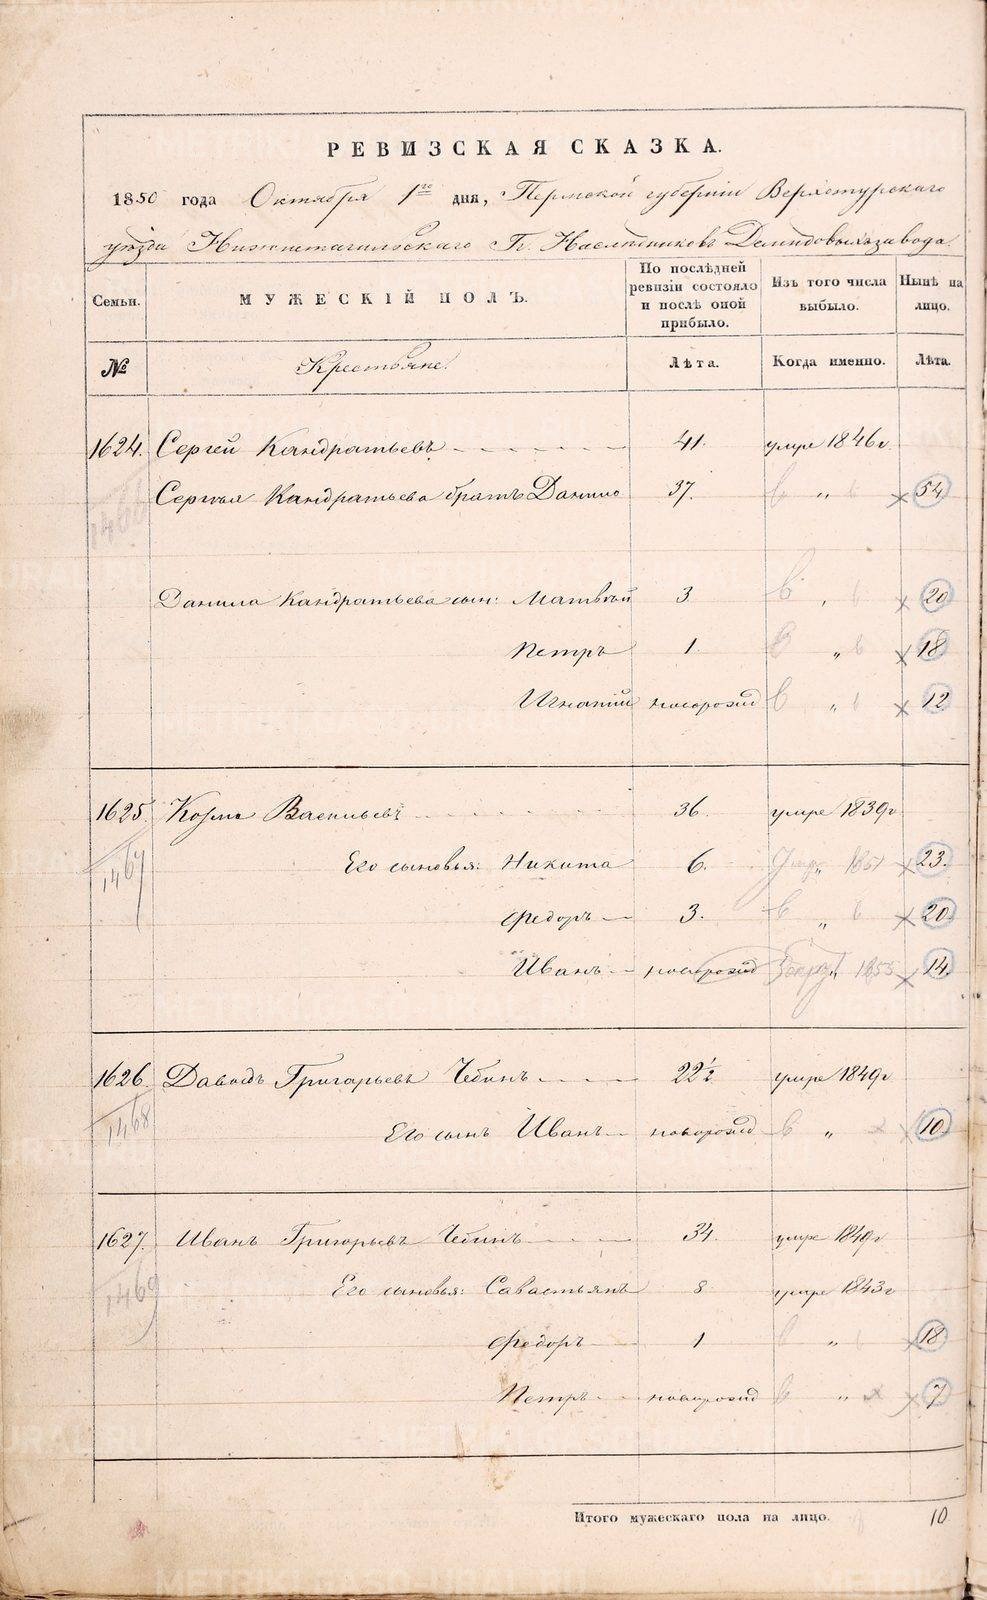 РЕВИЗСКАЯ СКАЗКА.
1850 года Октября 1го дня, Пермской губерніи Верхотурскаго
уѣзда Нижнетагильскаго Гг. Наслѣдниковъ Демидовыхъ завода.
Семьи.
МУЖЕСКІЙ ПОЛЪ.
По послѣдней ревизіи состояло и послѣ оной прибыло.
Изъ того числа выбыло.
Нынѣ на лицо.
№
Крестьяне.
Лѣта.
Когда именно.
Лѣта.
1624. Сергей Кандратьевъ 41. умре 1846 г
1466 Сергѣя Кандратьева братъ Данило 37. „ 54
Данила Кандратьева сын: Матвѣй 3 „ 20
Петръ 1 „ 18
Игнатій новорожд „ 12
1625. Козма Васильевъ 36. умре 1839 г
1467 Его сыновья: Никита 6. „ 1851 23.
Федоръ 3. „ 20
Иванъ новорожд „ 1855 14.
1626. Давыдъ Григорьевъ Чебинъ 22 1/2 умре 1849 г
1468 Его сынъ Иванъ новорожд „ 10
1627. Иванъ Григорьевъ Чебинъ 34. умре 1849 г
1469 Его сыновья: Савастьянъ 8 умре 1843 г
Федоръ 1 „ 18
Петръ новорожд „ 7
Итого мужескаго пола на лицо. 10
METRIKI.GASO-URAL.RU